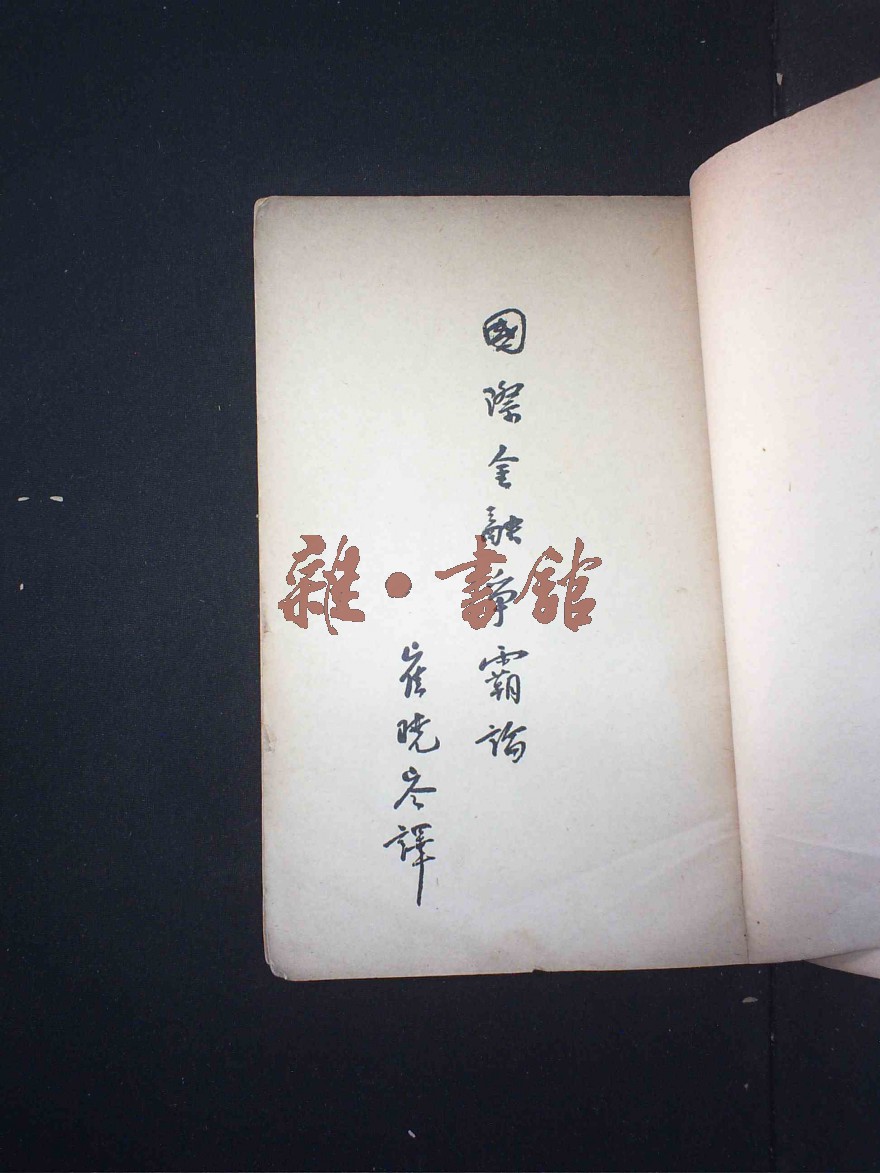 國際金融爭霸論
崔曉岑譯
雜·書館